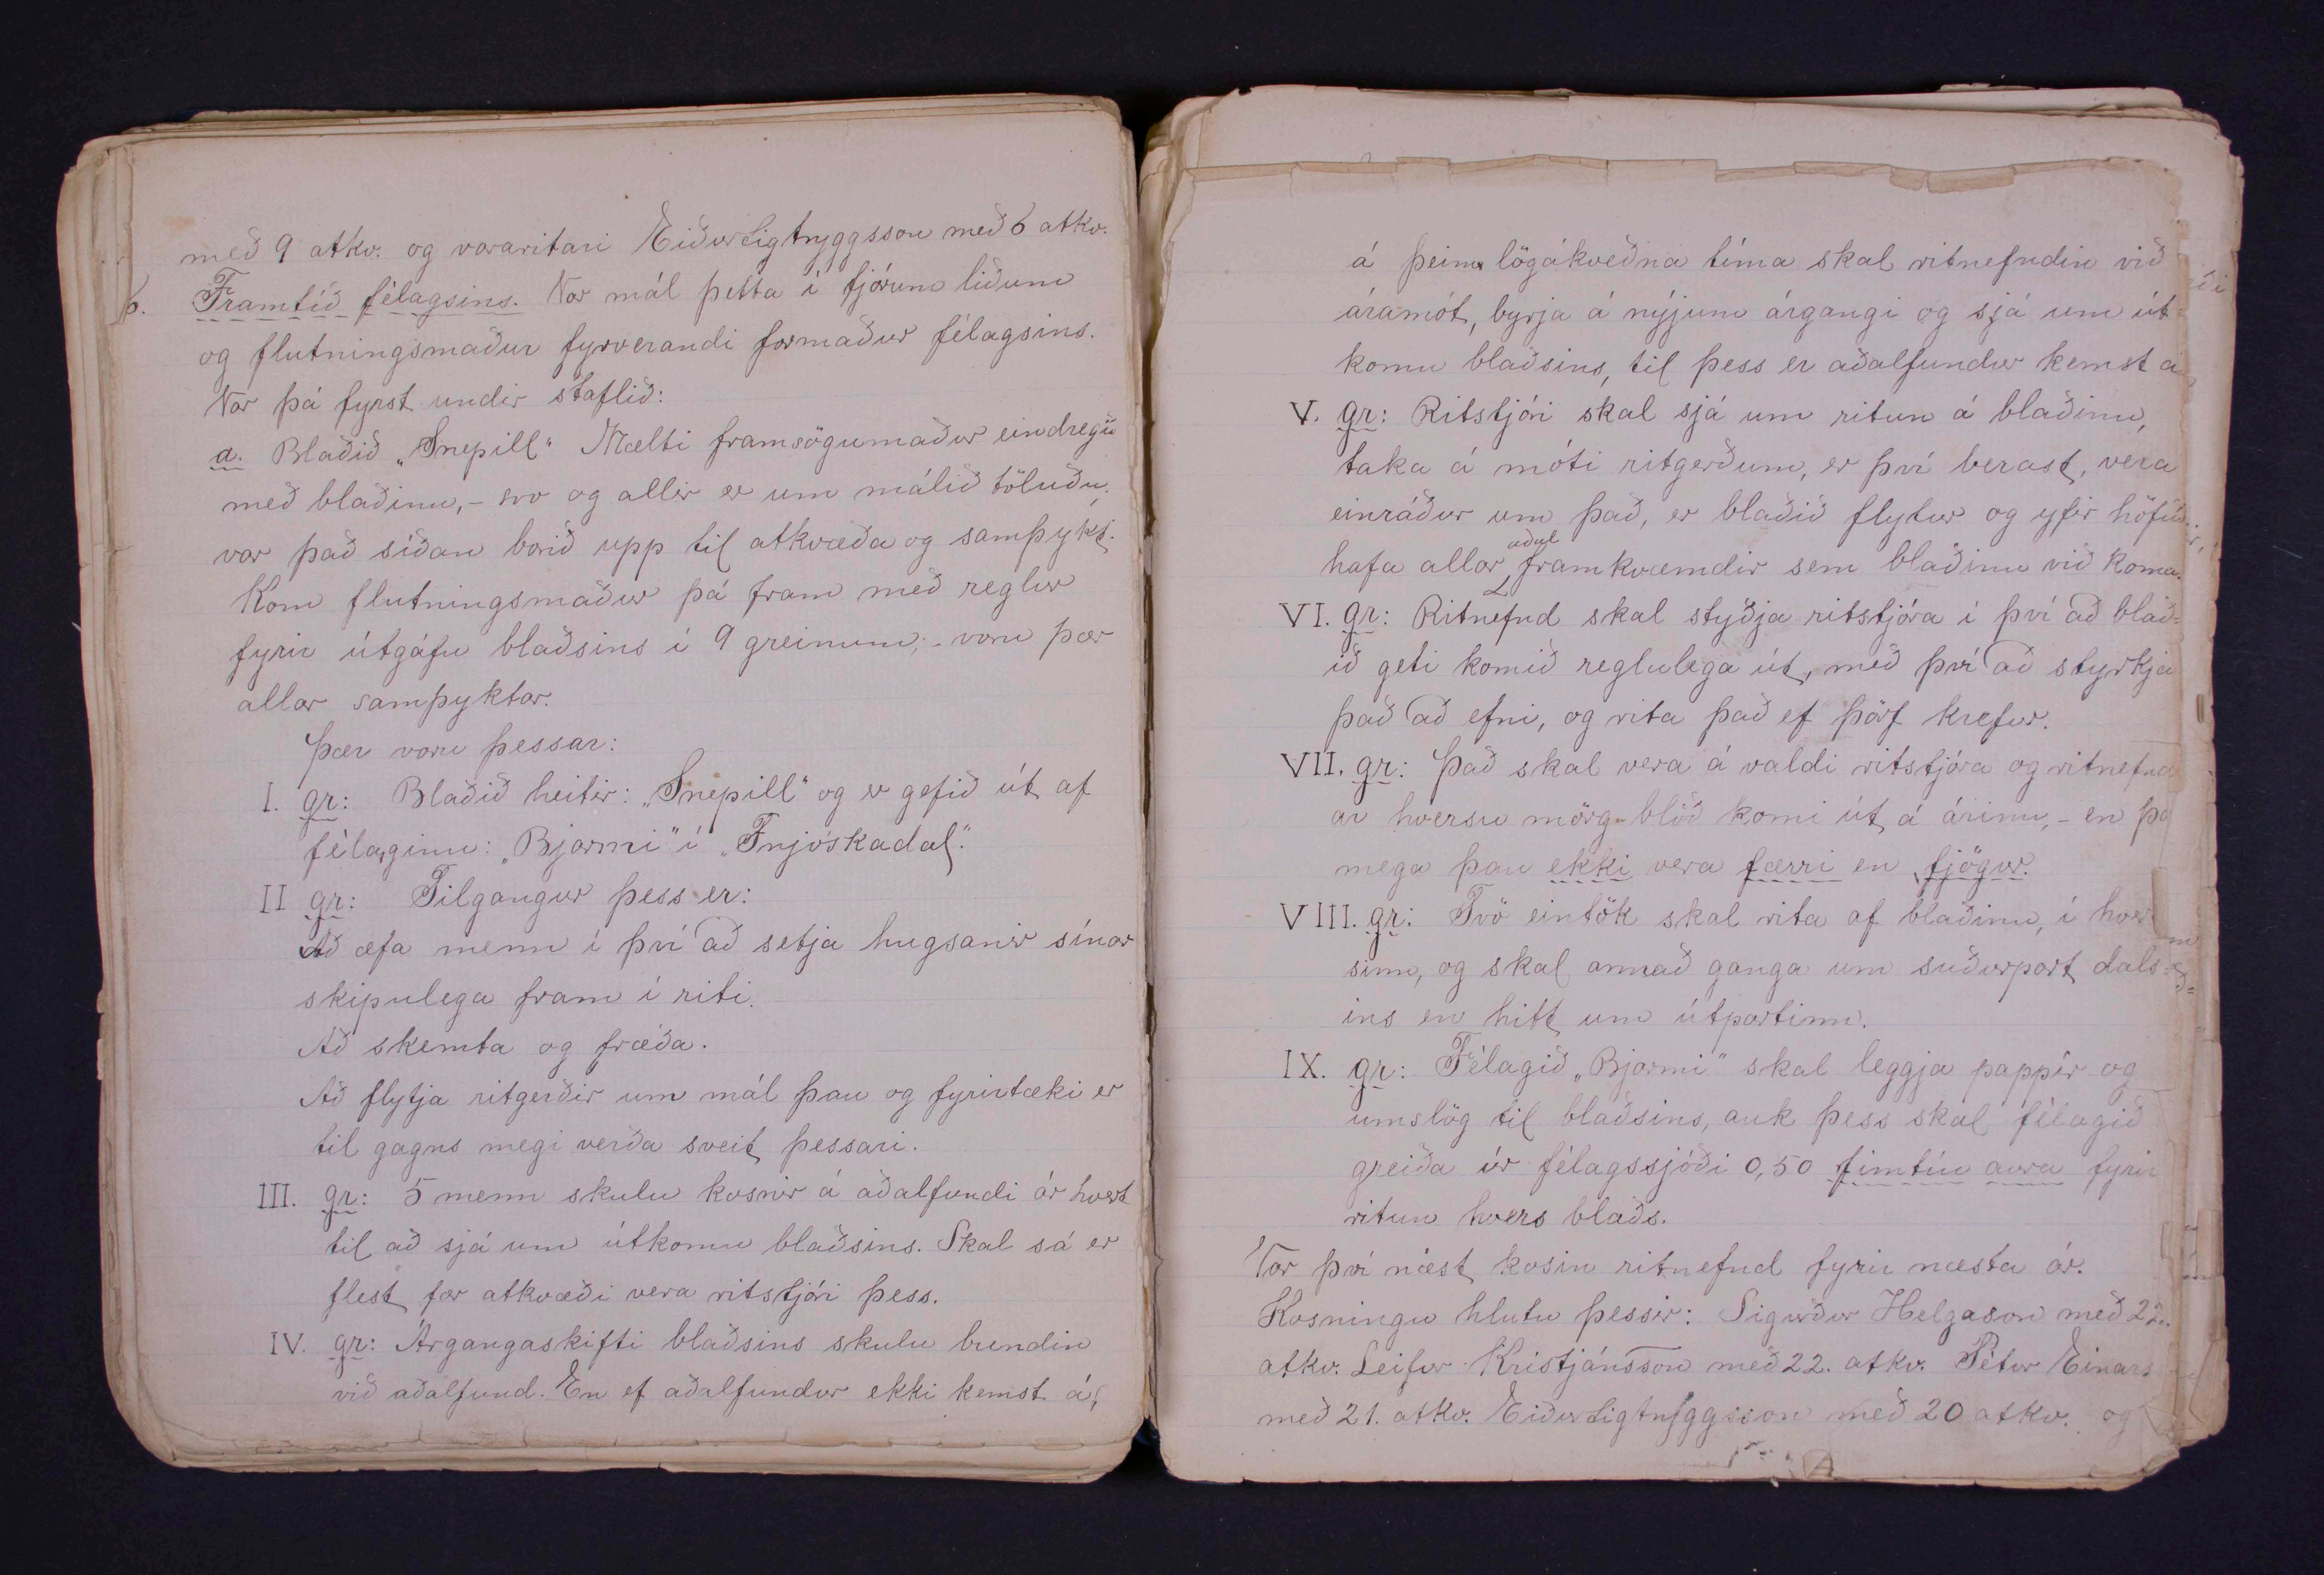 með 9 atkv. og vararitari Eiður Sigtryggsson með 6 atkv.
6. Framtíð félagsins. Var mál þetta í fjórum liðum
og flutningsmaður fyrverandi formaður félagsins.
Var þá fyrst undir staflið:
a. Blaðið „Snepill“ Mælti framsögumaður eindregið
með blaðinu, - svo og allir er um málið töluðu;
var það síðan borið upp til atkvæða og samþykt.
Kom flutningsmaður þá fram með reglur
fyrir útgáfu blaðsins í 9 greinum; - voru þær
allar samþyktar.
Þær voru þessar:
I. gr: Blaðið heitir: „Snepill“ og er gefið út af
félaginu: „Bjarmi“ í „Fnjóskadal“.
II gr: Tilgangur þess er:
Að æfa menn í því að setja hugsanir sínar
skipulega fram í riti.
Að skemta og fræða.
Að flytja ritgerðir um mál þau og fyrirtæki er
til gagns megi verða sveit þessari.
III. gr: 5 menn skulu kosnir á aðalfundi ár hvert
til að sjá um útkomu blaðsins. Skal sá er
flest fær atkvæði vera ritstjóri þess.
IV. gr: Árgangaskifti blaðsins skulu bundin
við aðalfund. En ef aðalfundur ekki kemst á,
á þeim lögákveðna tíma skal ritnefndin við
áramót, byrja á nýjum árgangi og sjá um út-
komu blaðsins, til þess er aðalfundur kemst á
V. gr: Ritstjóri skal sjá um ritun á blaðinu,
taka á móti ritgerðum, er því berast, vera
einráður um það, er blaðið flytur og yfir höfuð
hafa allar aðal framkvæmdir sem blaðinu við koma.
VI. gr: Ritnefnd skal styðja ritstjóra í því að blað-
ið geti komið reglulega út, með því að styrkja
það að efni, og rita það ef þörf krefur.
VII. gr: Það skal vera á valdi ritstjóra og ritnefnd
ar hversu mörg blöð komi út á árinu, - en þó
mega þau ekki vera færri en fjögur.
VIII. gr: Tvö eintök skal rita af blaðinu, í hver
sinn, og skal annað ganga um suðurpart dals-
ins en hitt um útpartinn.
IX. gr: Félagið „Bjarmi“ skal leggja pappír og
umslög til blaðsins, auk þess skal félagið
greiða úr félagssjóði 0,50 fimtíu aura fyrir
ritun hvers blaðs.
Var því næst kosin ritnefnd fyrir næsta ár.
Kosningu hlutu þessir: Sigurður Helgason með 22.
atkv. Leifur Kristjánsson með 22. atkv. Pétur Einars
með 21. atkv. Eiður Sigtryggsson með 20 atkv. og